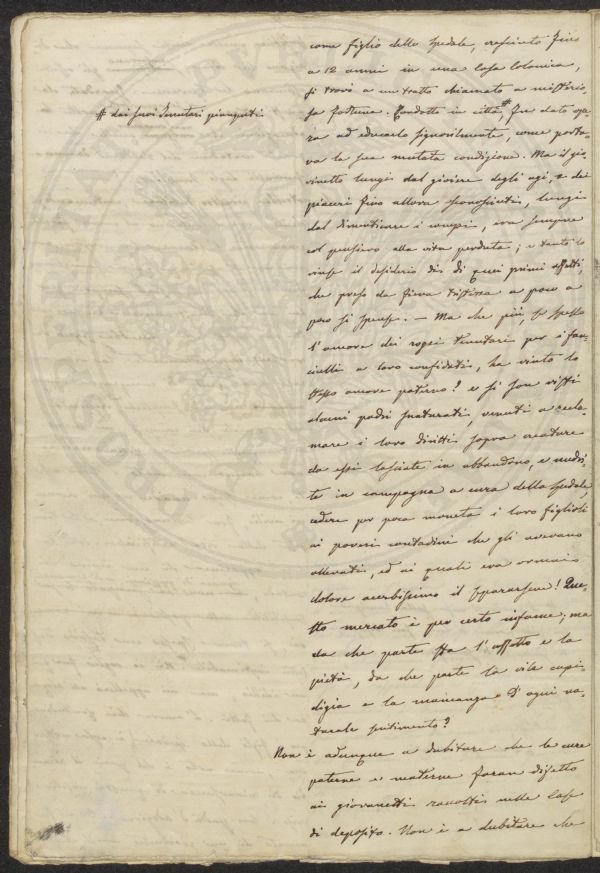 come figlio dello spedale, cresciuto fino
a 12 anni in una casa colonica,
si trovò a un tratto chiamato a misterio-
sa fortuna. Condotto in città #, fu dato ope-
# dai suoi Tenutari piangenti
ra ad educarlo signorilmente, come porta-
va la sua mutata condizione. Ma il gio-
vinetto lungi dal gioire degli agi, e dei
piaceri fino allora sconosciuti, lungi
dal dimenticare i campi, era sempre
col pensiero alla vita perduta; e tanto lo
vinse il desiderio di quei primi affetti,
che preso da fiera tristezza a poco a
poco si spense. — Ma che più, se spesso
l'amore dei rozzi Tenutari per i fan-
ciulli a loro confidati, ha vinto lo
stesso amore paterno? e si son visti
alcuni padri snaturati, venuti a recla-
mare i loro diritti sopra creature
da essi lasciate in abbandono, e nudri-
te in campagna a cura dello spedale,
cedere per poca moneta i loro figlioli
ai poveri contadini che gli avevano
allevati, ed ai quali era ormai
dolore acerbissimo il separarsene! Que-
sto mercato è per certo infame; ma
da che parte sta l'affetto e la
pietà, da che parte la vile cupi-
digia e la mancanza d'ogni na-
turale sentimento?
Non è adunque a dubitare che le cure
paterne e materne faran difetto
ai giovanetti raccolti nelle Case
di deposito. Non è a dubitare che